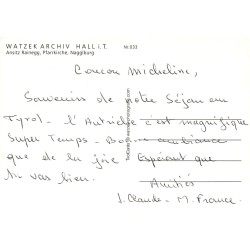 WATZEK ARCHIV HALL i.T.
Ansitz Rainegg, Pfarrkirche, Nagglburg
Nr. 033
Coucou Micheline,
Souvenirs de notre Séjour en
Tyrol - l'Autriche c'est magnifique
Super Temps - Bonne ambiance
que de la joie Espérant que
tu vas bien.
Amitiés
J. Claude - M. France.